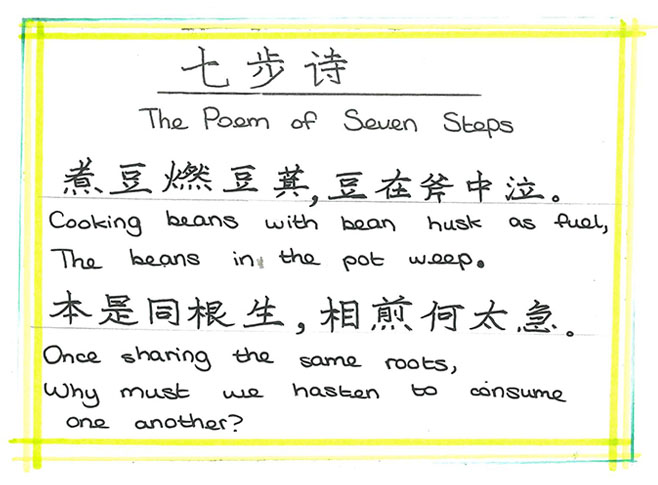 七步诗
The Poem of Seven Steps
煮豆燃豆萁,豆在斧中泣。
Cooking beans with bean husk as fuel,
The beans in the pot weep.
本是同根生,相煎何太急。
Once sharing the same roots,
Why must we hasten to consume
one another?